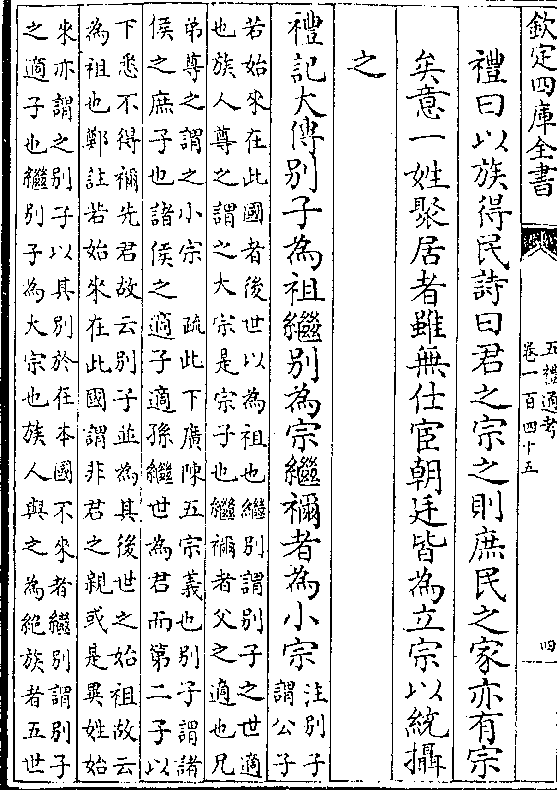 欽定四庫全書
五禮通考
卷一百四十五
四
禮曰以族得民詩曰君之宗之則庶民之家亦有宗
矣意一姓聚居者雖無仕宦朝廷皆為立宗以統攝
之
禮記大傳別子為祖繼別為宗繼禰者為小宗
注別子
謂公子
若始來在此國者後世以為祖也繼別謂別子之世適
也族人尊之謂之大宗是宗子也繼禰者父之適也兄
弟尊之謂之小宗 疏此下廣陳五宗義也別子謂諸
侯之庶子也諸侯之適子適孫繼世為君而第二子以
下悉不得禰先君故云別子並為其後世之始祖故云
為祖也鄭註若始來在此國謂非君之親或是異姓始
來亦謂之別子以其別於在本國不來者繼別謂別子
之適子也繼別子為大宗也族人與之為絶族者五世